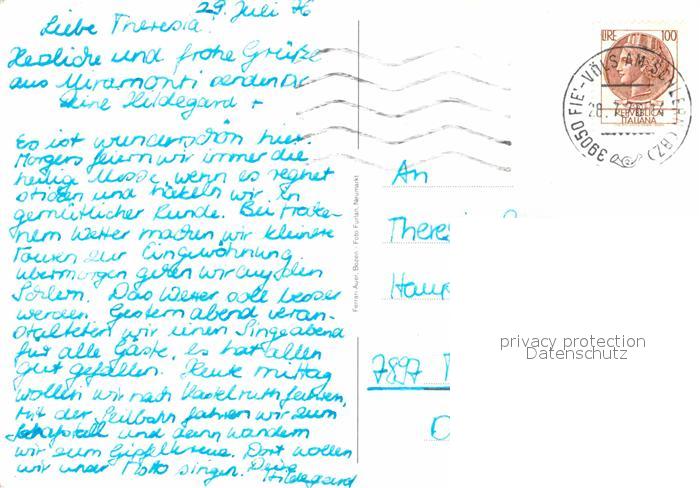 29. Juli 76
Liebe Theresia!
Herzliche und frohe Grüße
aus Miramonti senden Dir
Deine Hildegard +
Es ist wunderschön hier.
Morgens feiern wir immer die
heilige Messe, wenn es regnet
sticken und häkeln wir in
gemütlicher Runde. Bei trocke-
nem Wetter machen wir kleinere
Touren zur Eingewöhnung
übermorgen gehen wir auf den
Schlern. Das Wetter soll besser
werden. Gestern abend veran-
stalteten wir einen Singeabend
für alle Gäste, es hat allen
gut gefallen. Heute mittag
wollen wir nach Kastelruth fahren,
Mit der Seilbahn fahren wir zum
und dann wandern
wir zum Gipfelkreuz. Dort wollen
wir unser Motto singen. Deine
Hildegard
Ferrari Auer, Bozen - Foto Furlan, Neumarkt
LIRE 100
REPVBBLICA
ITALIANA
39050 FIE'-VÖLS AM SCHLERN (BZ)
28.7.76
An
Theres
Haup
7897
privacy protection
Datenschutz